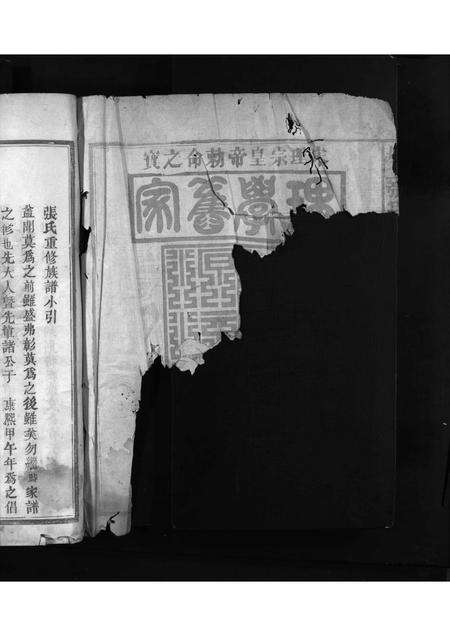 理宗皇帝勅命之寶
理學舊家
張氏重修族譜小引
葢聞莫爲之前雖盛弗彰莫爲之後雖美勿繼 家譜
之修也先大人曁先輩諸公于 康熙甲午年爲之倡